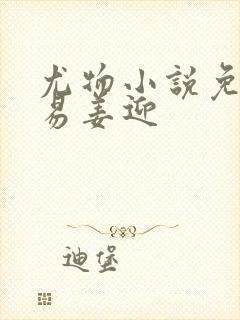 尤物小説免
易姜迎
迪堡